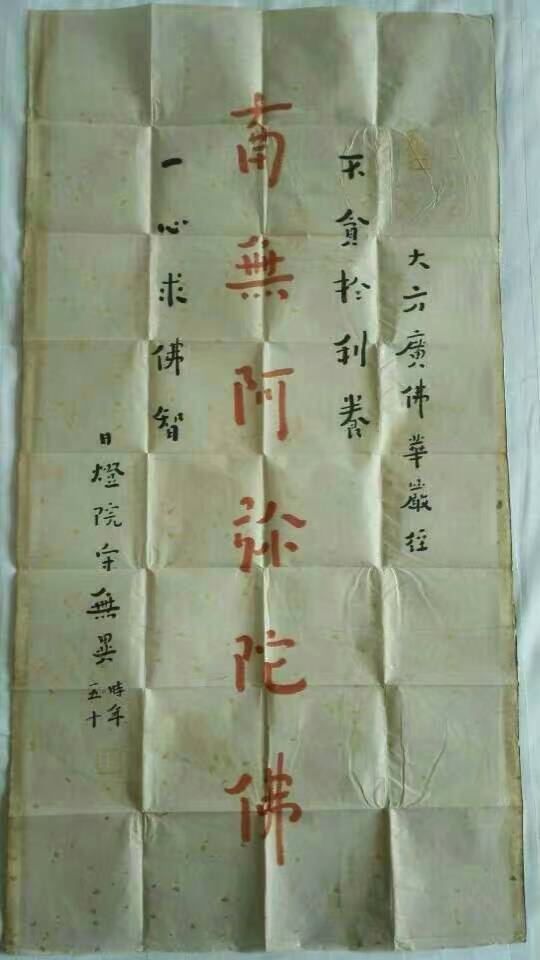 大方廣佛華嚴經
不貪於利養
南無阿弥陀佛
一心求佛智
日燈院守無異
時年
五十